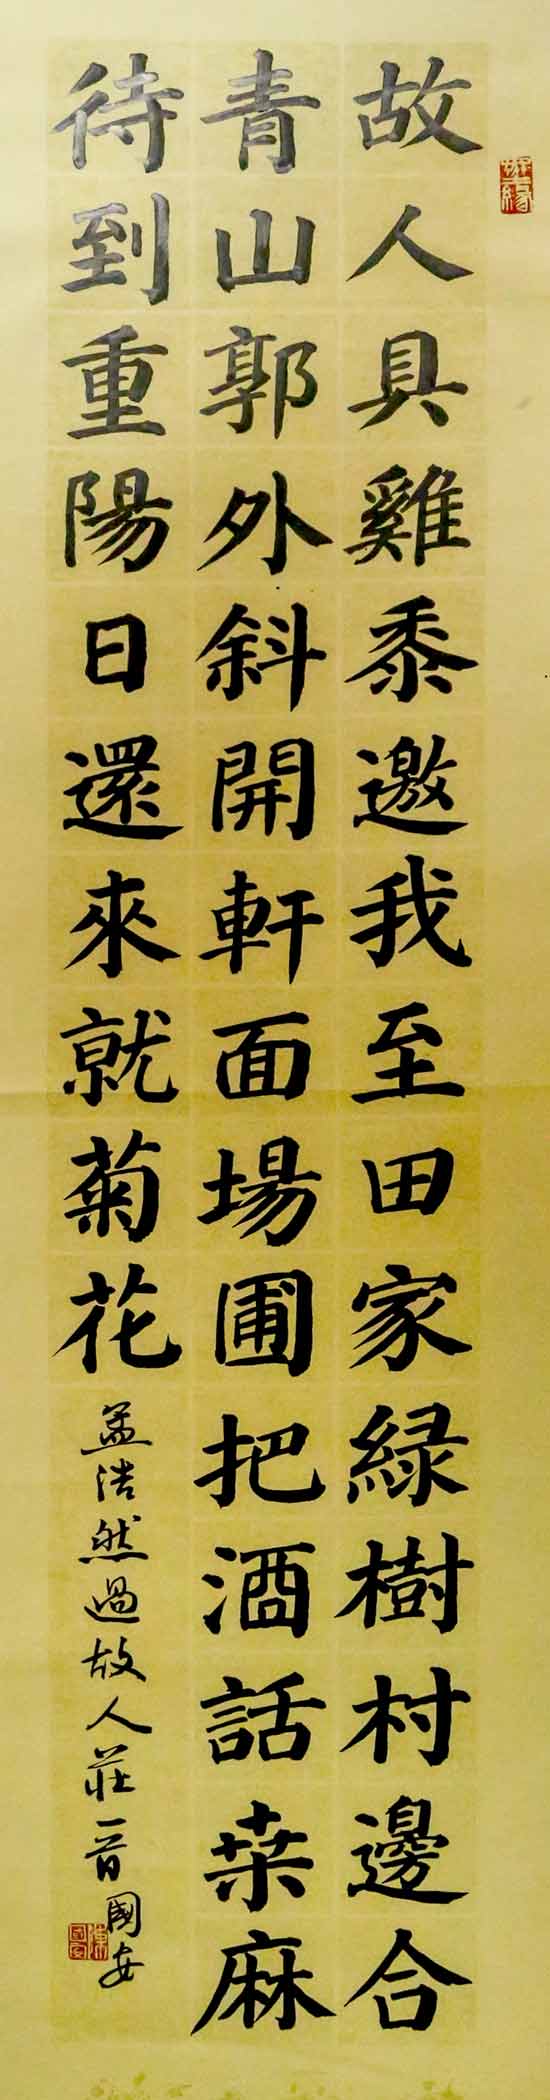 故人具雞黍邀我至田家綠樹村邊合
青山郭外斜開軒面場圃把酒話桒麻
待到重陽日還來就菊花
孟浩然過故人莊一首國安